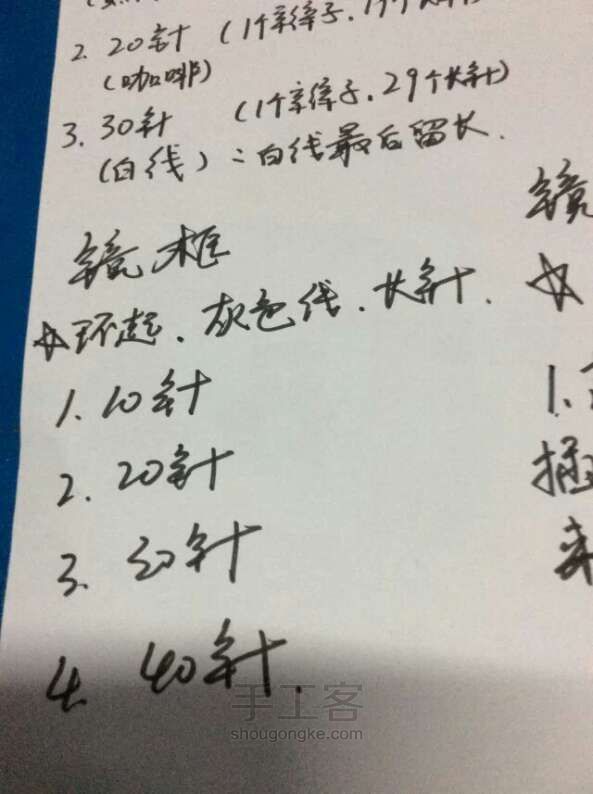 2. 20针 (1个辫子.19个长针)
(咖啡)
3. 30针 (1个辫子.29个长针)
(白线):白线最后留长.
镜框
☆环起.灰色线.长针.
1. 10针
2. 20针
3. 30针
4. 40针.
镜
☆
1.
插
来
手工客
shougongke.com